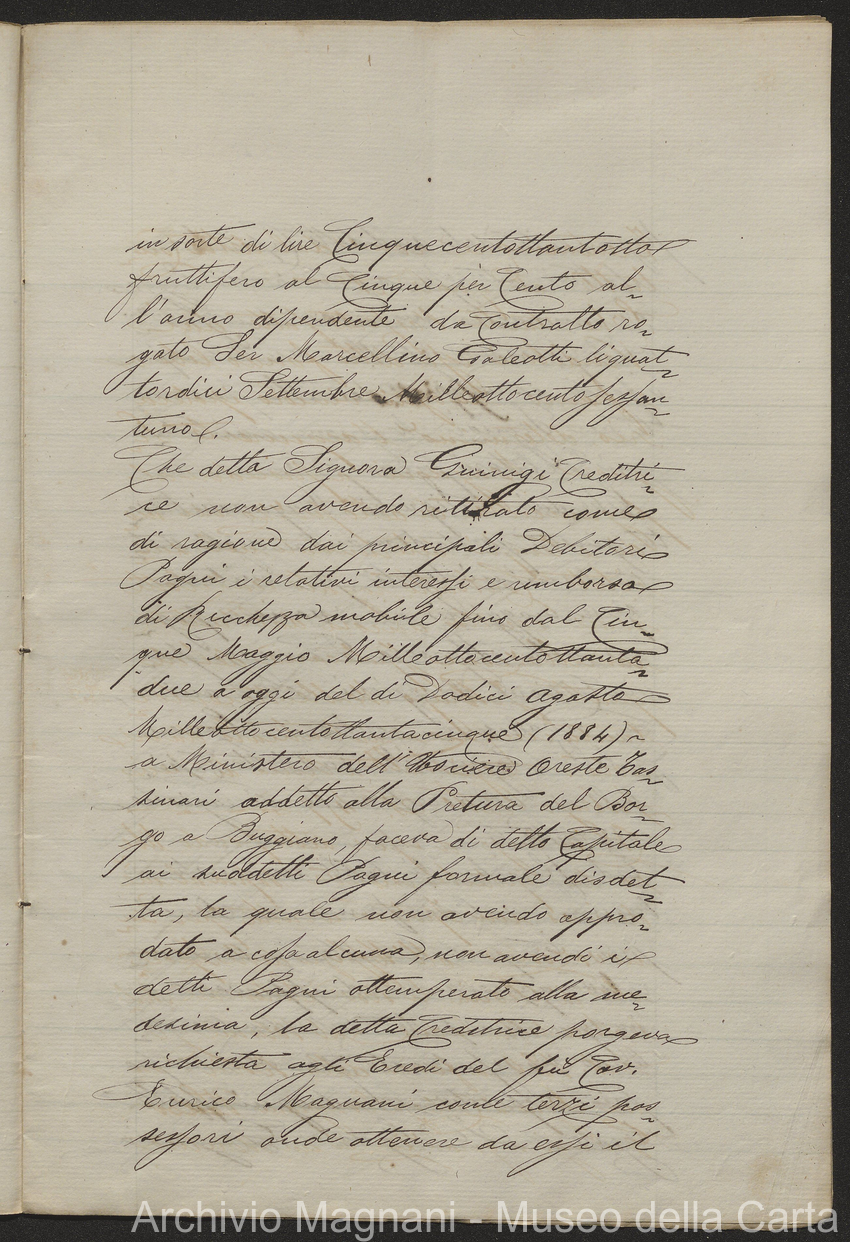 in sorte di lire Cinquecentottantotto
fruttifero al Cinque per Cento al-
l'anno dipendente da Contratto ro-
gato Ser Marcellino Galeotti li quat-
tordici Settembre Milleottocentosessan-
tuno.
Che detta Signora Guinigi Creditri-
ce non avendo ritirato come
di ragione dai principali Debitori
Pagni i relativi interessi e rimborso
di Ricchezza mobile fino dal Cin-
que Maggio Milleottocentottanta-
due a oggi del di Dodici Agosto
Milleottocentottantacinque (1884)
a Ministero dell'Usciere Oreste Cas-
sinari addetto alla Pretura del Bor-
go a Buggiano, faceva di detto Capitale
ai suddetti Pagni formale disdet-
ta, la quale non avendo appro-
dato a cosa alcuna, non avendi i
detti Pagni ottemperato alla me-
desima, la detta Creditrice porgeva
richiesta agli Eredi del fu Cav.
Enrico Magnani come terzi pos-
sessori onde ottenere da essi il
Archivio Magnani - Museo della Carta